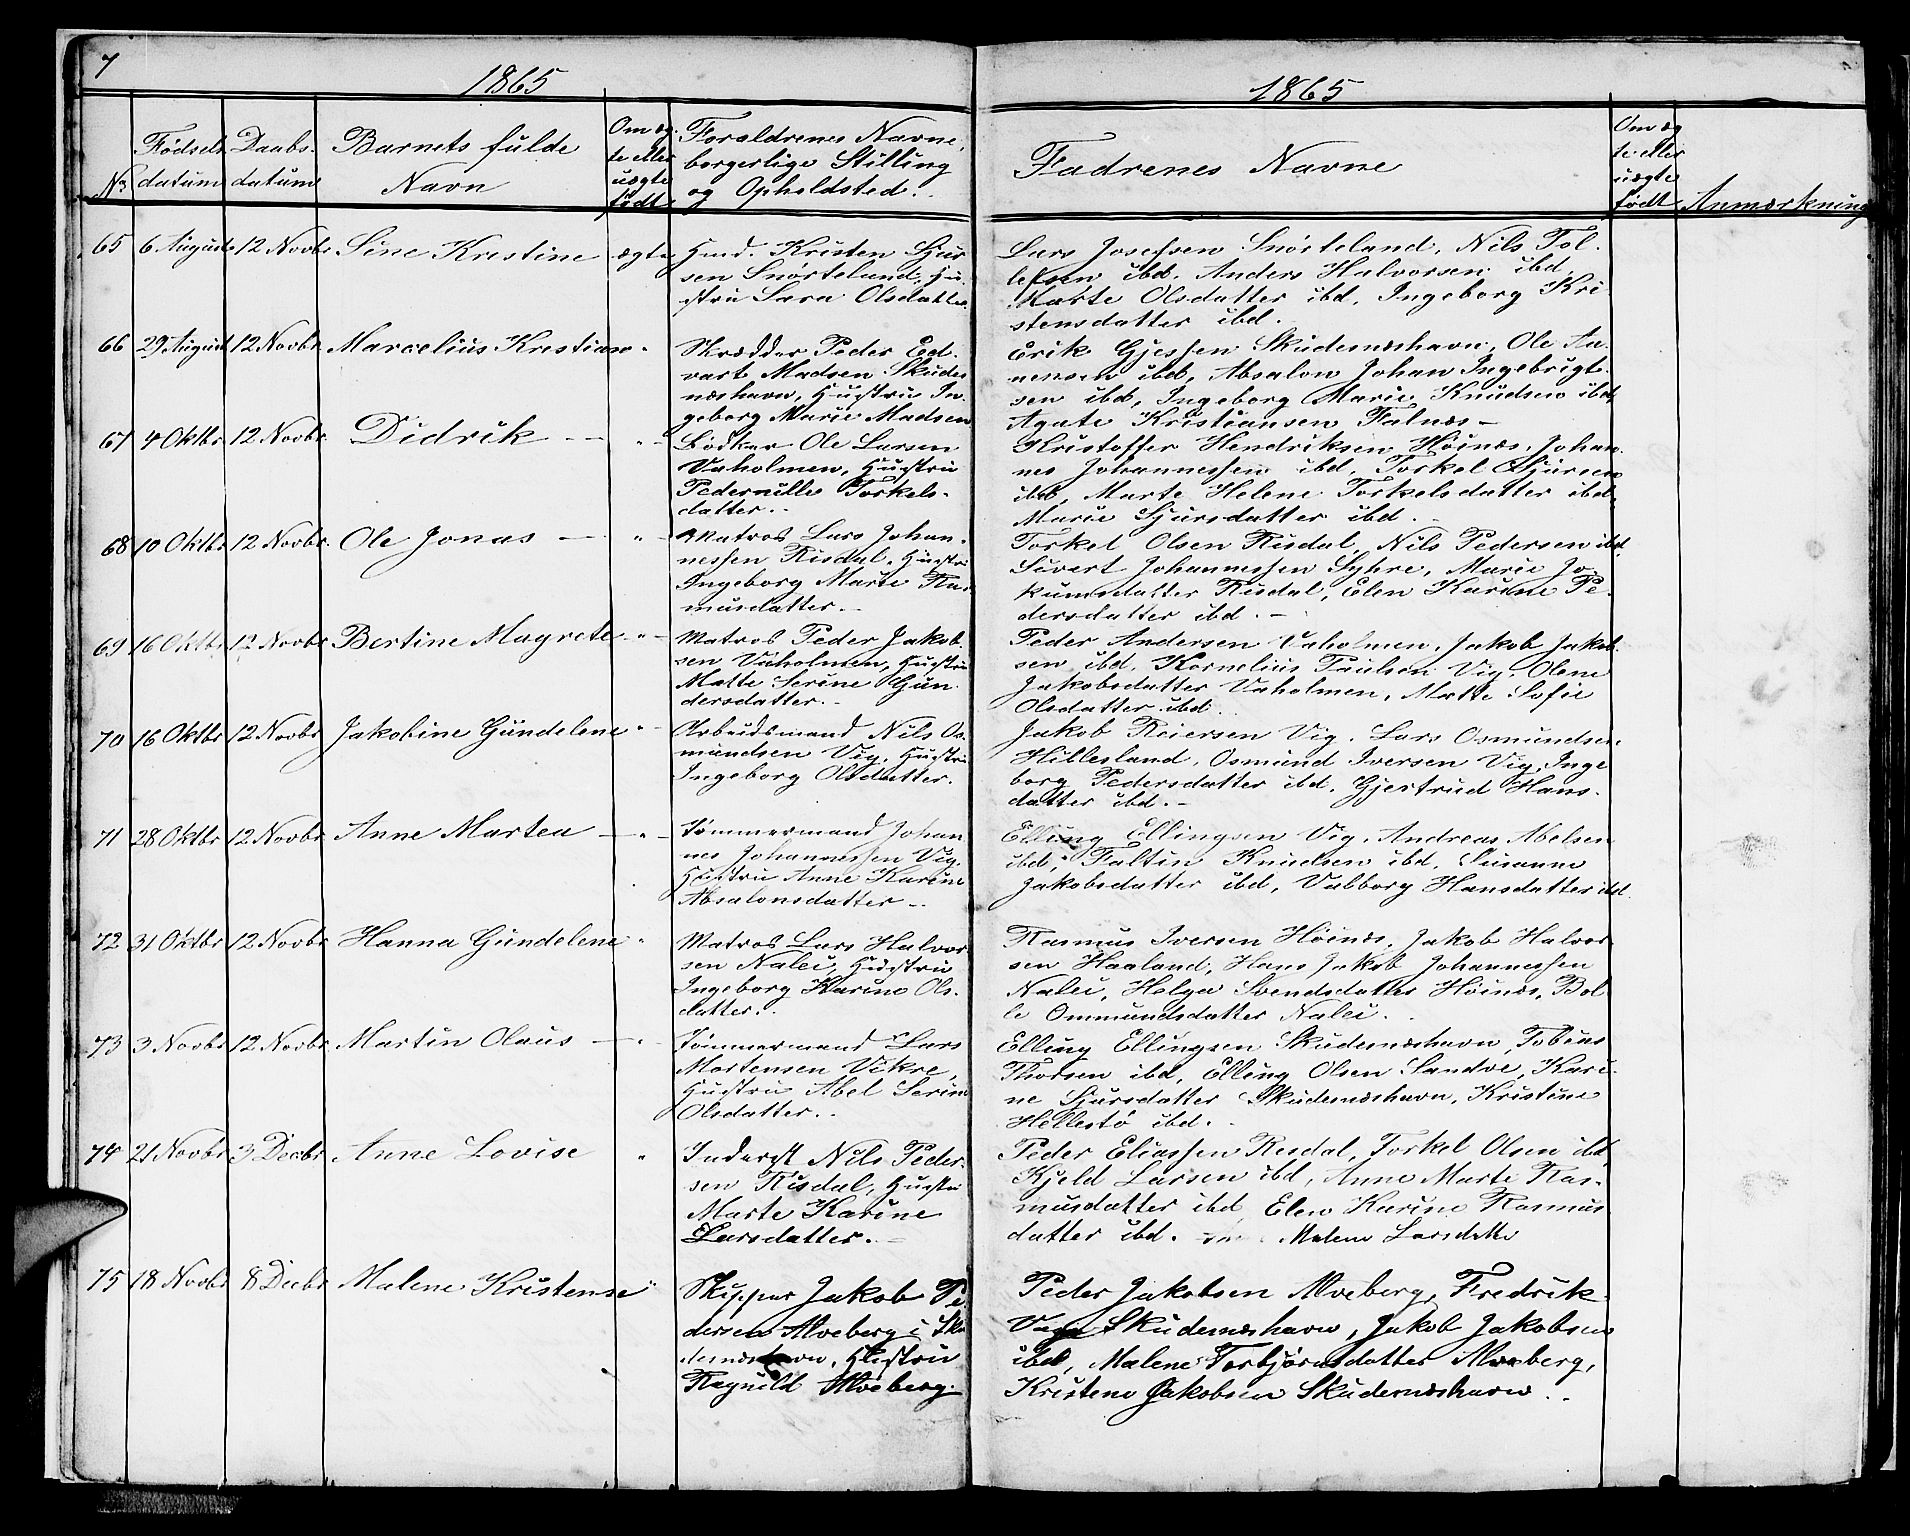 7
1865
1865
No
Fødsels
datum
Daabs-
datum
Barnets fulde
Navn
Om æg-
te eller
uægte
født
Forældrenes Navne,
borgerlige Stilling
og Opholdsted.
Fadrenes Navne
Om æg
te eller
uægte
født
Anmærkning
65 6 August 12 Novbr Sine Kristine ægte
Gmd. Kristen Sjur-
sen Snørteland, Hu-
stru Sara Olsdatter.
Lars Josefsen Snørteland, Nils Tol-
lefsen ibd, Anders Halvorsen ibd,
Marte Olsdatter ibd, Ingeborg Kri-
stensdatter ibd.
66 29 August 12 Novbr Marcelius Kristian "
Skrædder Peder Ed-
vart Madsen Skudes-
næshavn, Hustru In-
geborg Marie Madsen
Erik Gjessen Skudesnæshavn, Ole An-
nensen ibd, Absalon Johan Ingebrigt-
sen ibd, Ingeborg Marie Knudsen ibd,
Agate Kristiansen Falnæs —
67 4 Oktbr 12 Novbr Didrik — "
Bødker Ole Larsen
Vaholmen, Hustru
Pedernille Torkels-
datter.
Kristoffer Hendriksen Høinæs, Johan-
nes Johannessen ibd, Torkel Sjursen
ibd, Marte Helene Torkelsdatter ibd,
Marie Sjursdatter ibd.
68 10 Oktbr 12 Novbr. Ole Jonas — "
Matros Lars Johan-
nessen Risdal, Hustru
Ingeborg Marie Ras-
musdatter.
Torkel Olsen Risdal, Nils Pedersen ibd
Sivert Johannessen Syhre, Marie Jo-
kumsdatter Risdal, Elen Karine Pe-
dersdatter ibd. —
69 16 Oktbr 12 Novbr Bertine Magrete "
Matros Peder Jakob-
sen Vaholmen, Hustru
Matte Serine Gun-
dersdatter.
Peder Andersen Vaholmen, Jakob Jakob-
sen ibd, Kornelius Paulsen Vig, Olene
Jakobsdatter Vaholmen, Matte Sofie
Olsdatter ibd.
70 16 Oktbr 12 Novbr Jakobine Gundelene "
Arbeidsmand Nils Os-
mundsen Vig, Hustru
Ingeborg Olsdatter.
Jakob Reiersen Vig, Lars Osmundsen
Hillesland, Osmund Iversen Vig, Inge-
borg Pedersdatter ibd, Gjertrud Hans-
datter ibd. —
71 28 Oktbr 12 Novbr Anne Martea — "
Tømmermand Johan-
nes Johannessen Vig,
Hustru Anne Karine
Absalonsdatter —
Elling Ellingsen Vig, Andreas Abelsen
ibd, Faltin Knudsen ibd, Susanne
Jakobsdatter ibd, Valborg Hansdatter ibd.
72 31 Oktbr 12 Novbr Hanna Gundelene "
Matros Lars Halvor-
sen Nalei, Hustru
Ingeborg Karine Ols-
datter.
Rasmus Iversen Høinæs, Jakob Halvor-
sen Haaland, Hans Jakob Johannessen
Nalei, Helga Svendsdatter Høinæs, Bol-
le Ommundsdatter Nalei.
73 3 Novbr 12 Novbr Martin Olaus — "
Tømmermand Lars
Mortensen Vikre,
Hustru Abel Serine
Olsdatter.
Elling Ellingsen Skudesnæshavn, Tobias
Thorsen ibd, Elling Olsen Sandve, Kari-
ne Sjursdatter Skudesnæshavn, Kristine
Hellestø ibd.
74 21 Novbr 3 Decbr Anne Lovise "
Inderst Nils Peder-
sen Risdal, Hustru
Marte Karine
Larsdatter. —
Peder Eliassen Risdal, Torkel Olsen ibd,
Kjeld Larsen ibd, Anne Marte Ras-
musdatter ibd Elen Karine Rasmus-
datter ibd. Malene Larsdatte
75 18 Novbr 8 Decbr Malene Kristense "
Skipper Jakob Pe-
dersen Alveberg i Sku-
desnæshavn, Hustru
Ragnild Alveberg.
Peder Jakobsen Alveberg, Fredrik
Skudesnæshavn, Jakob Jakobsen
ibd, Malene Torbjørnsdatter Alveberg,
Kristene Jakobsen Skudesnæshavn.